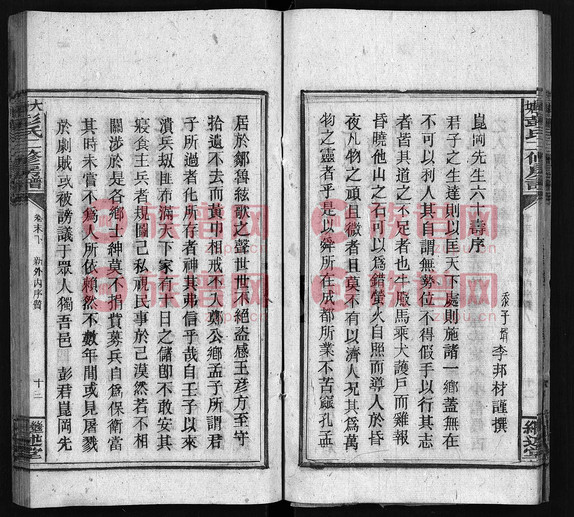 崑岡先生六十壽序
癸子婿李邦材謹撰
君子之生達則以匡天下處則施諸一鄉蓋無在
不可以利人其自謂無勢位不得假手以行其志
者皆其道之不足者也牛廄馬乘犬護戶而雞報
曉彼他山之石可以爲錯螢火自照而導人於昏
夜凡物之頑且微者且莫不有以濟人况其爲萬
物之靈者乎是以舜所在成都所業不苦窳孔孟
居於鄒魯絃歌之聲世世不絕盜感王彦方至守
拾遺不去而黄巾相戒不入鄭公鄉孟子所謂君
子所過者化所存者神其弗信乎哉自王子以來
潰兵刼匪布滿天下家有十日之儲卽不敢安其
寢食主兵者規圖己私視民事於己漠然若不相
關涉於是各鄉士紳莫不捐貲募兵自爲保衛當
其時未嘗不爲人所依賴然不數年間或見屠戮
於劇賊或被謗議于眾人獨吾邑 彭君崑岡先
大彭氏二修房譜
卷末下
新外內序贊
十二
繼述堂
族譜网
族譜网